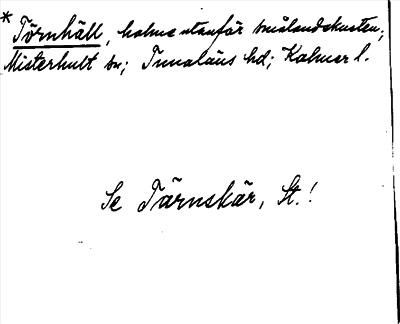 * Törnhäll, holme utanför smålandskusten;
Misterhult sn; Tunaläns hd; Kalmar l.
Se Tärnskär, St.!